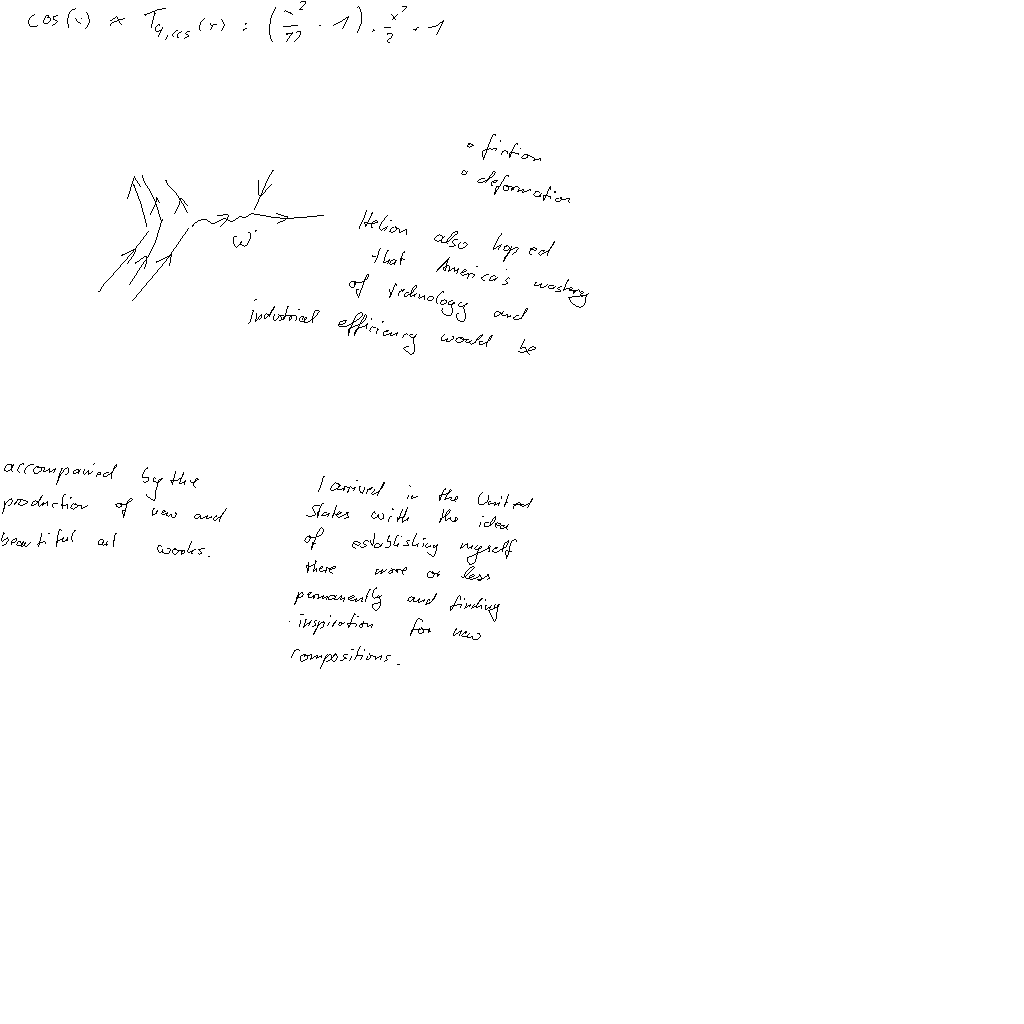 cos(x) ≈ T4,cos(x) = (x²/12 - 1) · x²/2 + 1
• friction
• deformation
W
Helion also hoped
that America's mastery
of technology and
industrial efficiency would be
accompanied by the
production of new and
beautiful art works.
I arrived in the United
States with the idea
of establishing myself
there more or less
permanently and finding
inspiration for new
compositions.